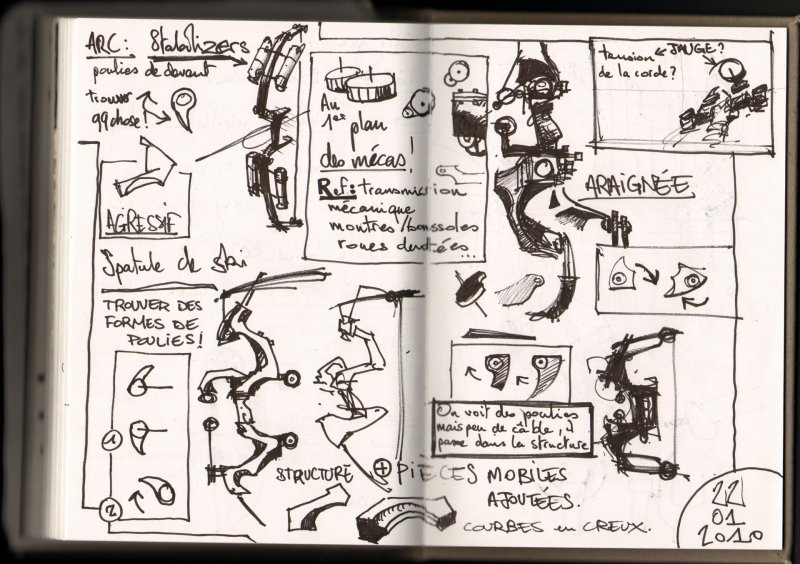 ARC: Stabilizers
poulies de devant
trouver
qqchose!
AGRESSIF
Spatule de ski
TROUVER DES
FORMES DE
POULIES!
1
2
Au
1er plan
des mécas!
Ref: transmission
mécanique
montres/boussoles
roues dentées...
tension
de la corde?
JAUGE?
ARAIGNÉE
On voit des poulies
mais peu de câble, il
passe dans la structure
STRUCTURE + PIÈCES MOBILES
AJOUTÉES.
COURBES en CREUX.
22
01
2010